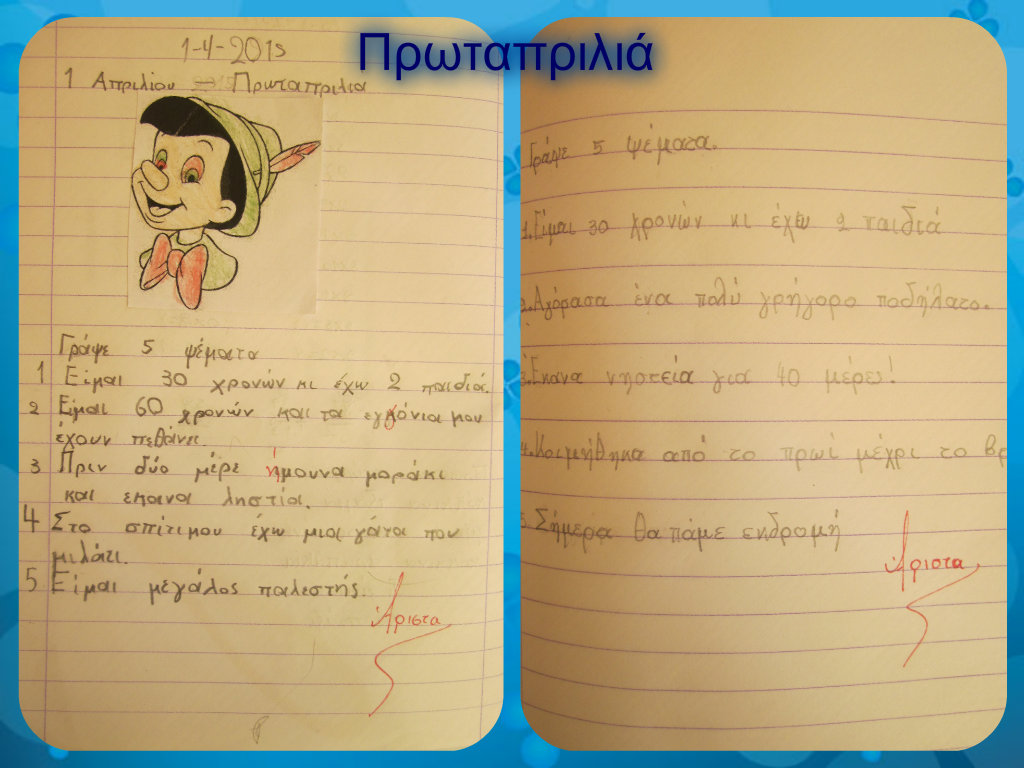 Πρωταπριλιά
1-4-2015
1 Απριλίου Πρωταπριλια
Γράψε 5 ψέματα
1 Είμαι 30 χρονών κι έχω 2 παιδιά.
2 Είμαι 60 χρονών και τα εγκόνια μου
έχουν πεθάνει.
3 Πριν δύο μέρε ήμουνα μοράκι
και εκανα ληστία.
4 Στο σπίτι μου έχω μια γάτα που
μιλάει.
5 Είμαι μεγάλος παλεστής.
Άριστα
Γράψε 5 ψέματα.
1. Είμαι 30 χρονών κι έχω 2 παιδιά
2. Αγόρασα ένα πολύ γρήγορο ποδήλατο.
3. Εκανα νηστεία για 40 μέρες!
4. Κοιμήθηκα από το πρωί μέχρι το βρ
5. Σήμερα θα πάμε εκδρομή
Άριστα